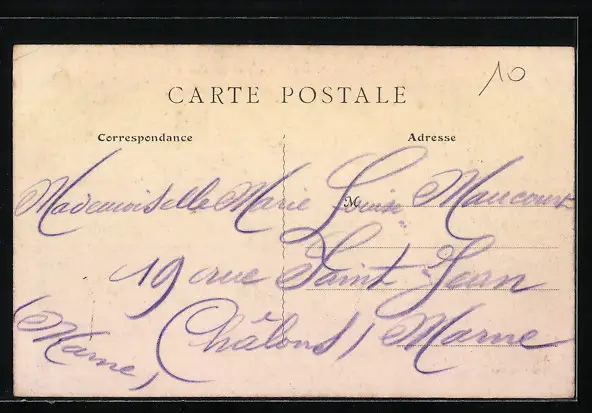 10
CARTE POSTALE
Correspondance Adresse
M
Mademoiselle Marie Louise Maucourt
19 rue Saint-Jean
Châlons / Marne
(Marne)